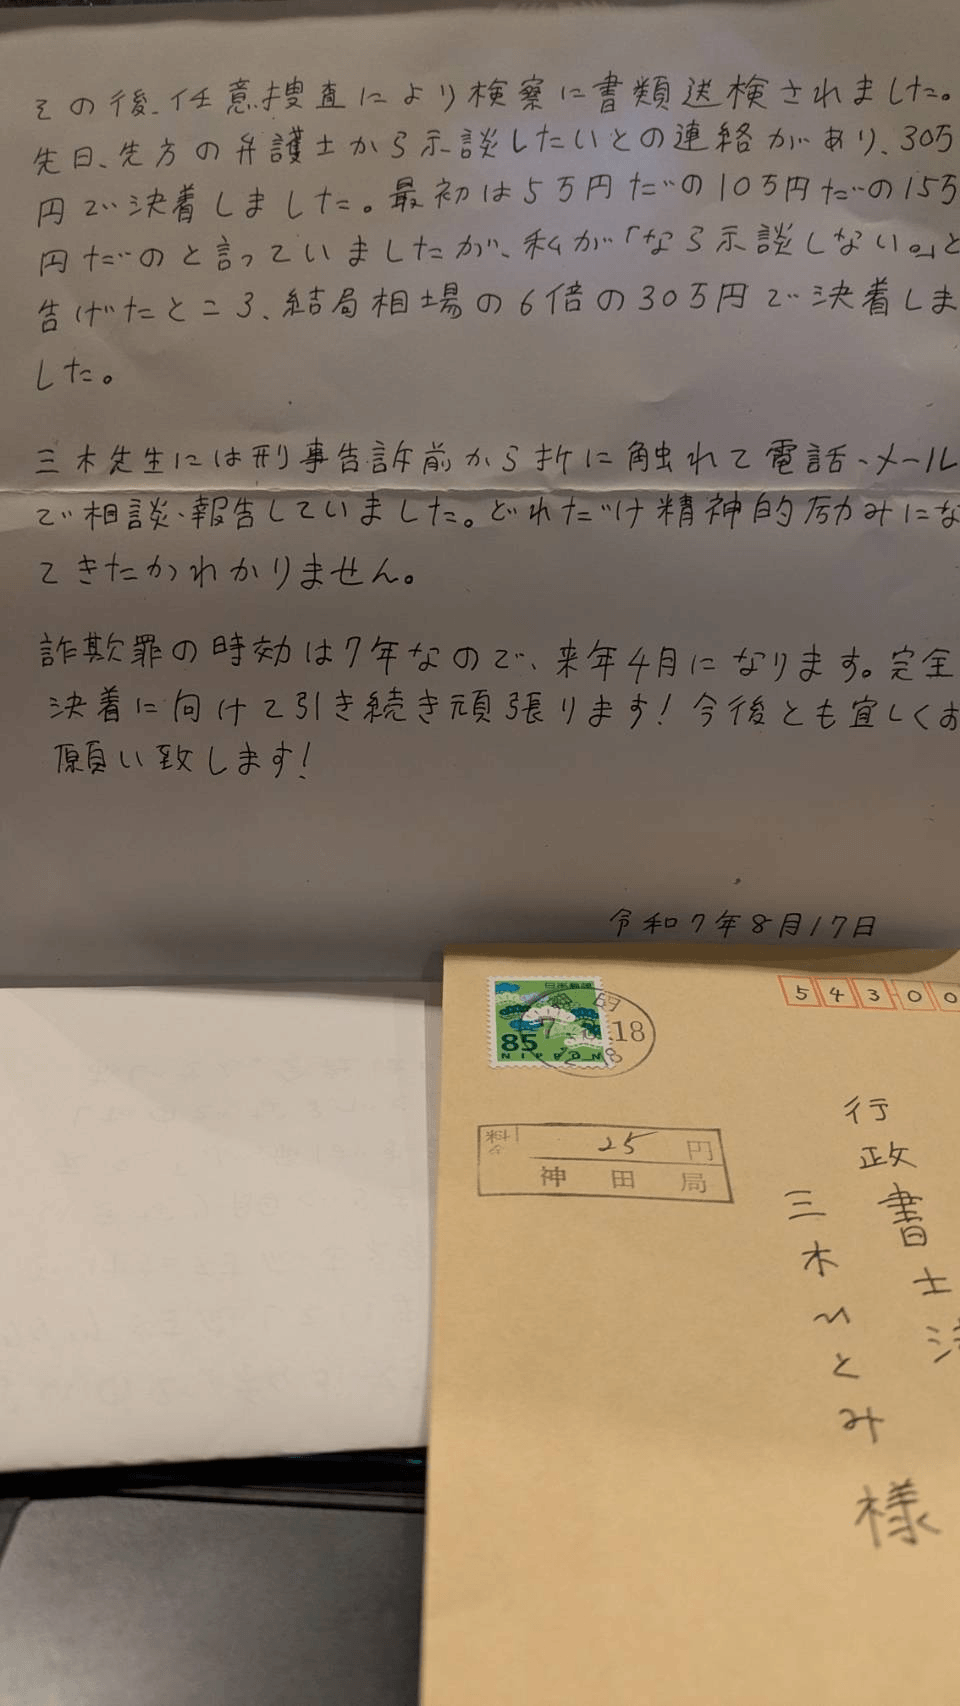 その後、任意捜査により検察に書類送検されました。
先日、先方の弁護士から示談したいとの連絡があり、30万
円で決着しました。最初は5万円だの10万円だの15万
円だのと言っていましたが、私が「なら示談しない。」と
告げたところ、結局相場の6倍の30万円で決着しま
した。
三木先生には刑事告訴前から折に触れて電話、メール
で相談、報告していました。どれだけ精神的励みにな
てきたかわかりません。
詐欺罪の時効は7年なので、来年4月になります。完全
決着に向けて引き続き頑張ります！今後とも宜しくお
願い致します！
令和7年8月17日
日本郵便
85
NIPPON
7. 8.18
料金 25 円
神田局
543-00
行政書士法
三木ひとみ様